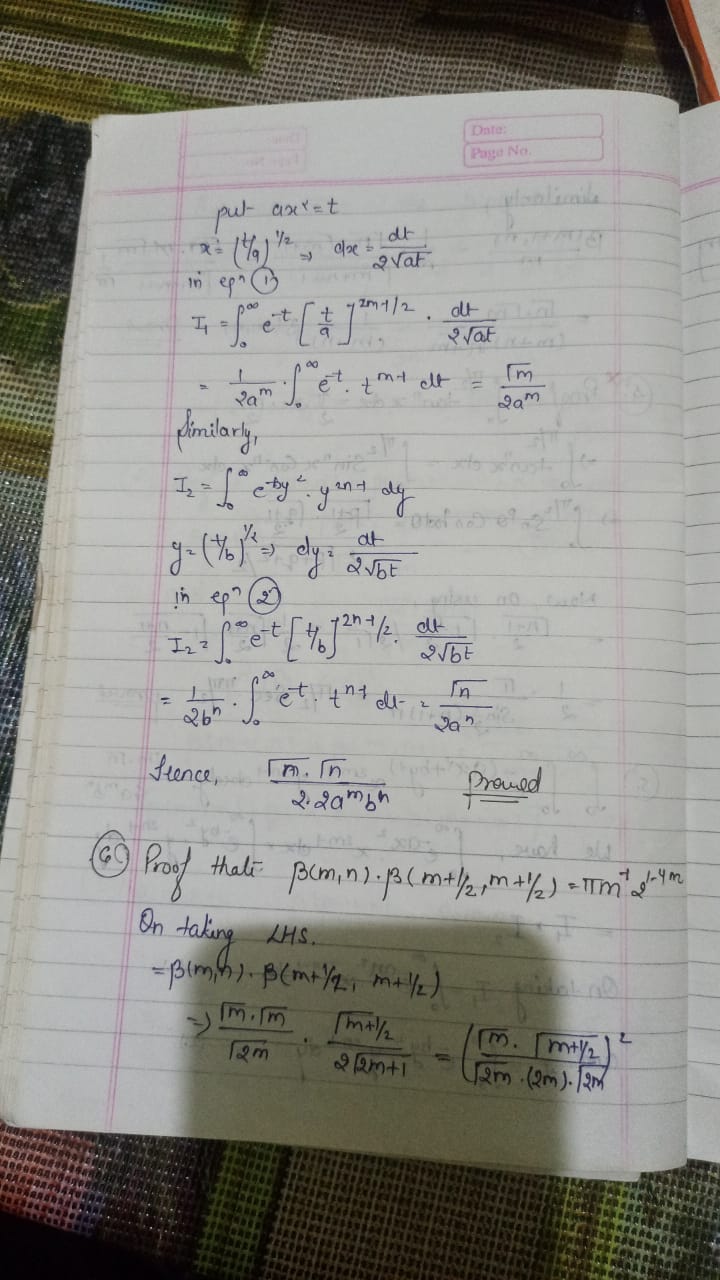 Date:
Page No.
put ax² = t
x = (t/a)^1/2 ⇒ dx = dt/2√at
in eqⁿ ①
I₁ = ∫₀^∞ e^-t [t/a]^2m-1/2 · dt/2√at
= 1/2a^m · ∫₀^∞ e^-t · t^m-1 dt = Γm/2a^m
Similarly,
I₂ = ∫₀^∞ e^-by² · y^2n-1 dy
y = (t/b)^1/2 ⇒ dy = dt/2√bt
in eqⁿ ②
I₂ = ∫₀^∞ e^-t [t/b]^2n-1/2 · dt/2√bt
= 1/2b^n · ∫₀^∞ e^-t · t^n-1 dt = Γn/2a^n
Hence, Γm · Γn/2·2a^m b^n Proved
⑥ Proof that β(m,n) · β(m+1/2, m+1/2) = πm^-1 2^1-4m
On taking LHS.
= β(m,n) · β(m+1/2, m+1/2)
⇒ Γm · Γm/Γ2m · Γm+1/2/2Γ2m+1 = (Γm · Γm+1/2)²/Γ2m · (2m) · Γ2m